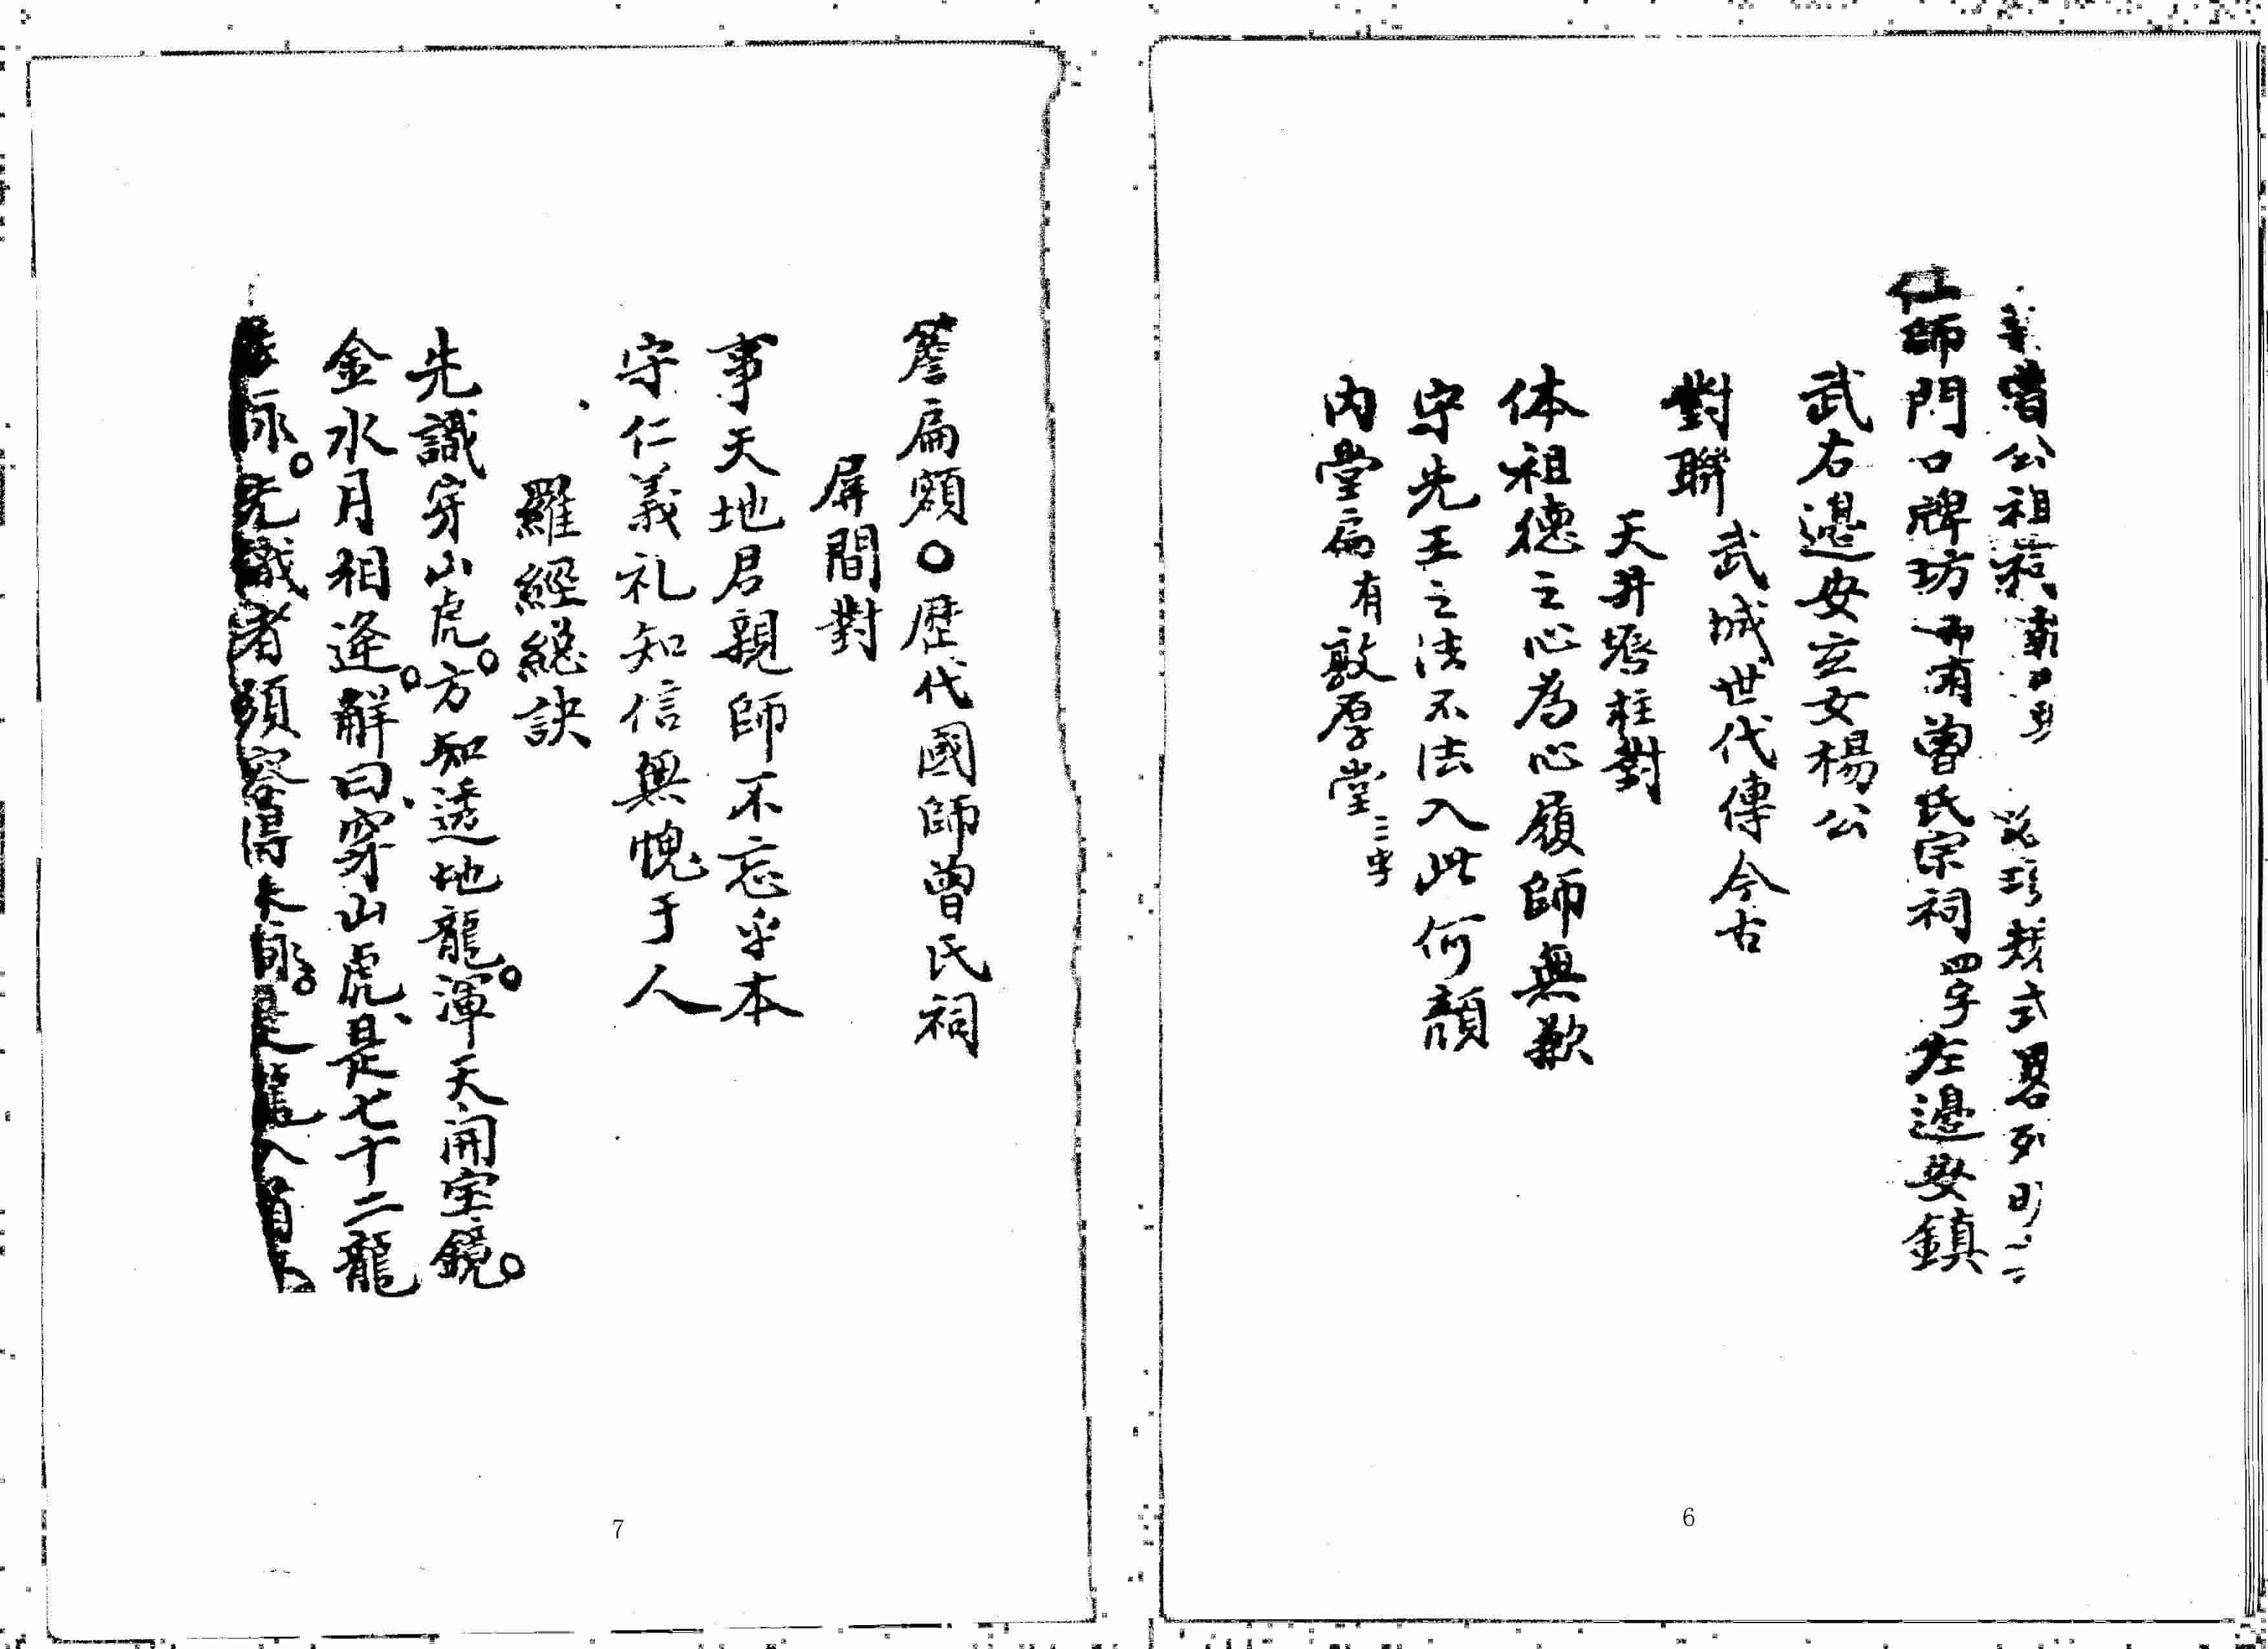 曾公祖祠 式畧列明
師門口牌坊 曾氏宗祠四字左邊安鎮
武右邊安立女楊公
對聯 武城世代傳今古
天井 柱對
体祖德之心為心履師無歉
守先王之法不法入此何顏
內堂扁有敦厚堂三字
6
簷扁額○歷代國師曾氏祠
屏間對
事天地君親師不忘乎本
守仁義礼知信無愧于人
羅經總訣
先識穿山虎。方知透地龍。渾天開宝鏡。
金水月相逢。解曰、穿山虎、是七十二龍
脉。先識者須審得來脉。是龍入首
7